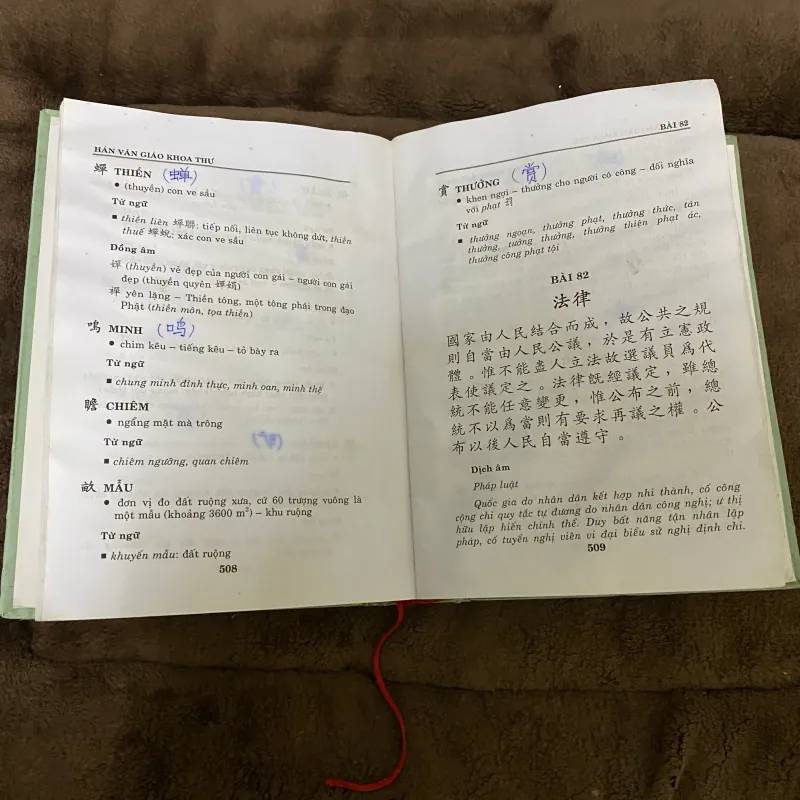 HÁN VĂN GIÁO KHOA THƯ
蟬 THIỀN (蝉)
• (thuyền) con ve sầu
Từ ngữ
▪ thiền liên 蟬聯: tiếp nối, liên tục không dứt, thiền
thuế 蟬蛻: xác con ve sầu
Đồng âm
嬋 (thuyền) vẻ đẹp của người con gái – người con gái
đẹp (thuyền quyên 嬋娟)
禪 yên lặng – Thiền tông, một tông phái trong đạo
Phật (thiền môn, tọa thiền)
鳴 MINH (鸣)
• chim kêu – tiếng kêu – tỏ bày ra
Từ ngữ
▪ chung minh đỉnh thực, minh oan, minh thệ
瞻 CHIÊM
• ngẩng mặt mà trông
Từ ngữ
▪ chiêm ngưỡng, quan chiêm
畝 MẪU
• đơn vị đo đất ruộng xưa, cứ 60 trượng vuông là
một mẫu (khoảng 3600 m²) – khu ruộng
Từ ngữ
▪ khuyến mẫu: đất ruộng
508
BÀI 82
賞 THƯỞNG (赏)
• khen ngợi – thưởng cho người có công – đối nghĩa
với phạt 罰
Từ ngữ
▪ thưởng ngoạn, thưởng phạt, thưởng thức, tán
thưởng, tưởng thưởng, thưởng thiện phạt ác,
thưởng công phạt tội
BÀI 82
法律
國家由人民結合而成，故公共之規
則自當由人民公議，於是有立憲政
體。惟不能盡人立法故選議員爲代
表使議定之。法律既經議定，雖總
統不能任意變更，惟公布之前，總
統不以爲當則有要求再議之權。公
布以後人民自當遵守。
Dịch âm
Pháp luật
Quốc gia do nhân dân kết hợp nhi thành, cố công
cộng chi quy tắc tự đương do nhân dân công nghị; ư thị
hữu lập hiến chính thể. Duy bất năng tận nhân lập
pháp, cố tuyển nghị viên vi đại biểu sử nghị định chi.
509